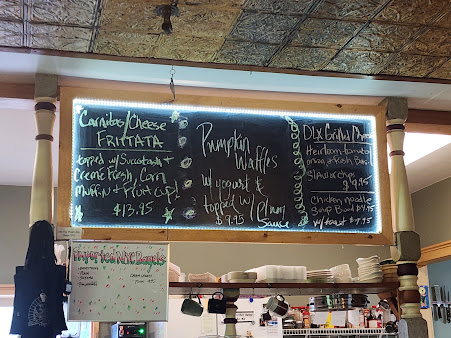 Carnitas/Cheese
FRITTATA
topped w/ Succotash +
Creme Fresh, Corn
muffin + fruit cup!
$13.95
Pumpkin
Waffles
w/ yogurt &
topped w/
Sauce
$9.95
DLX Grilled
Heirloom tomato
onion + fresh Basil
Slaw or chips
9.95
chicken noodle
Soup Bowl
w/ toast
Imported NYC Bagels